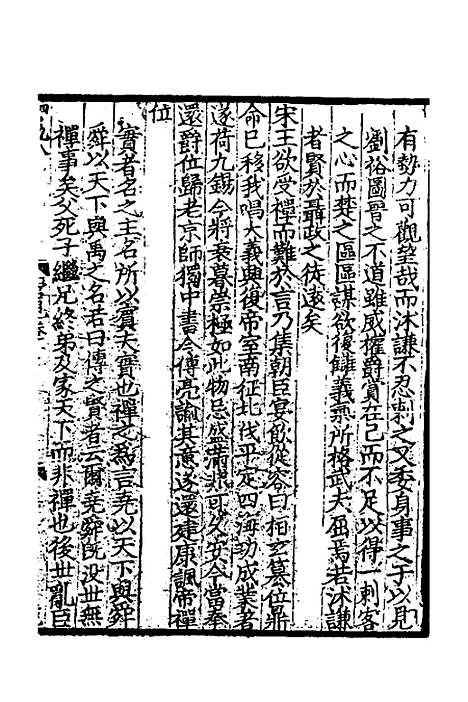 有勢力可觀望哉而沐謙不忍刺之又委身事之于以見
劉裕圖晉之不道雖威權爵賞在己而不足以得一刺客
之心而楚之區區謀欲復讎義無所格武夫屈焉若沐謙
者賢於聶政之徒遠矣
宋王欲受禪而難於言乃集朝臣宴飲從容曰桓玄篡位鼎
命已移我唱大義興復帝室南征北伐平定四海功成業著
遂荷九錫今將衰暮崇極如此物忌盛滿非可久安今當奉
還爵位歸老京師獨中書令傅亮諭其意遂還建康諷帝禪
位
實者名之主名所以賓夫實也禪之為言堯以天下與舜
舜以天下與禹之名若曰傳之賢者云爾堯舜既沒世無
禪事矣父死子繼兄終弟及家天下而非禪也後世亂臣